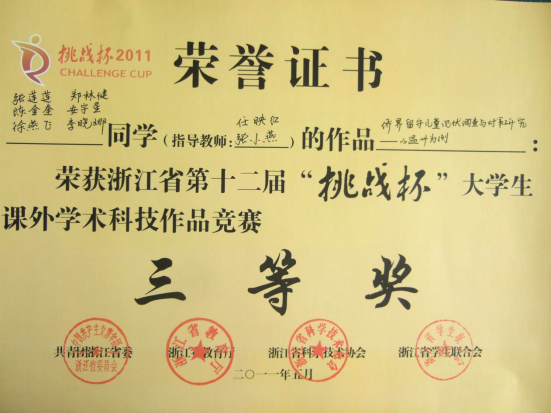 挑战杯2011
CHALLENGE CUP
荣誉证书
张莲莲 郑林健
陈奎奎 安宇星
徐燕飞 李晓娜 同学（指导教师：任映红 张小燕）的作品 侨界留守儿童现状调查与对策研究
——以温州为例：
荣获浙江省第十二届“挑战杯”大学生
课外学术科技作品竞赛
三等奖
共青团浙江省委 浙江省教育厅 浙江省科学技术协会 浙江省学生联合会
二〇一一年五月